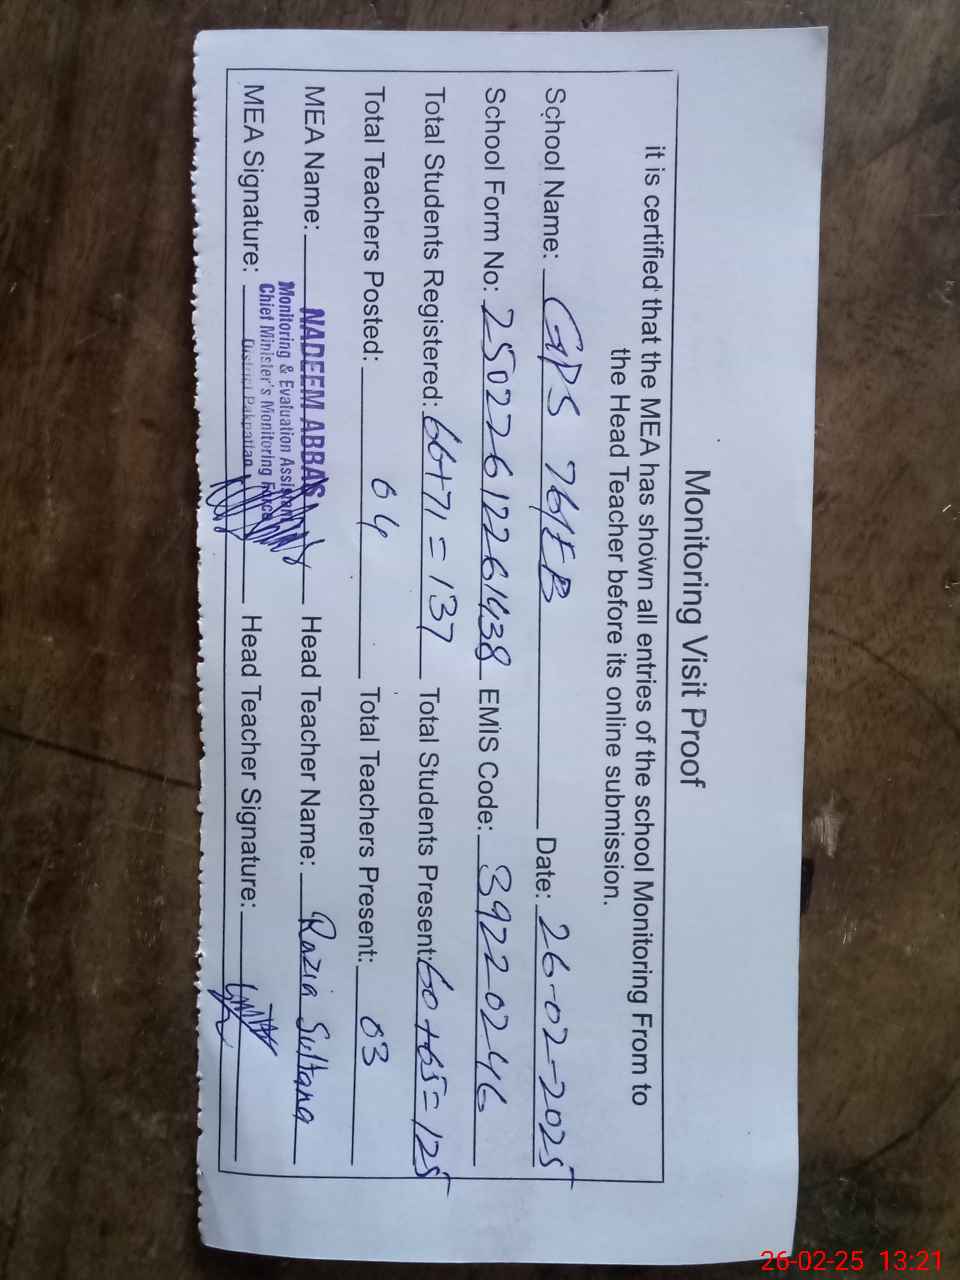 Monitoring Visit Proof
it is certified that the MEA has shown all entries of the school Monitoring From to
the Head Teacher before its online submission.
School Name: GPS 76/EB Date: 26-02-2025
School Form No: 25022612261438 EMIS Code: 39220246
Total Students Registered: 66+71=137 Total Students Present: 60+65=125
Total Teachers Posted: 04 Total Teachers Present: 03
MEA Name: NADEEM ABBAS Head Teacher Name: Razia Sultana
Monitoring & Evaluation Assistant
Chief Minister's Monitoring Force
District Pakpattan
MEA Signature: Head Teacher Signature:
26-02-25 13:21